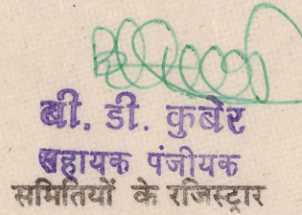 बी. डी. कुबेर
सहायक पंजीयक
समितियों के रजिस्ट्रार